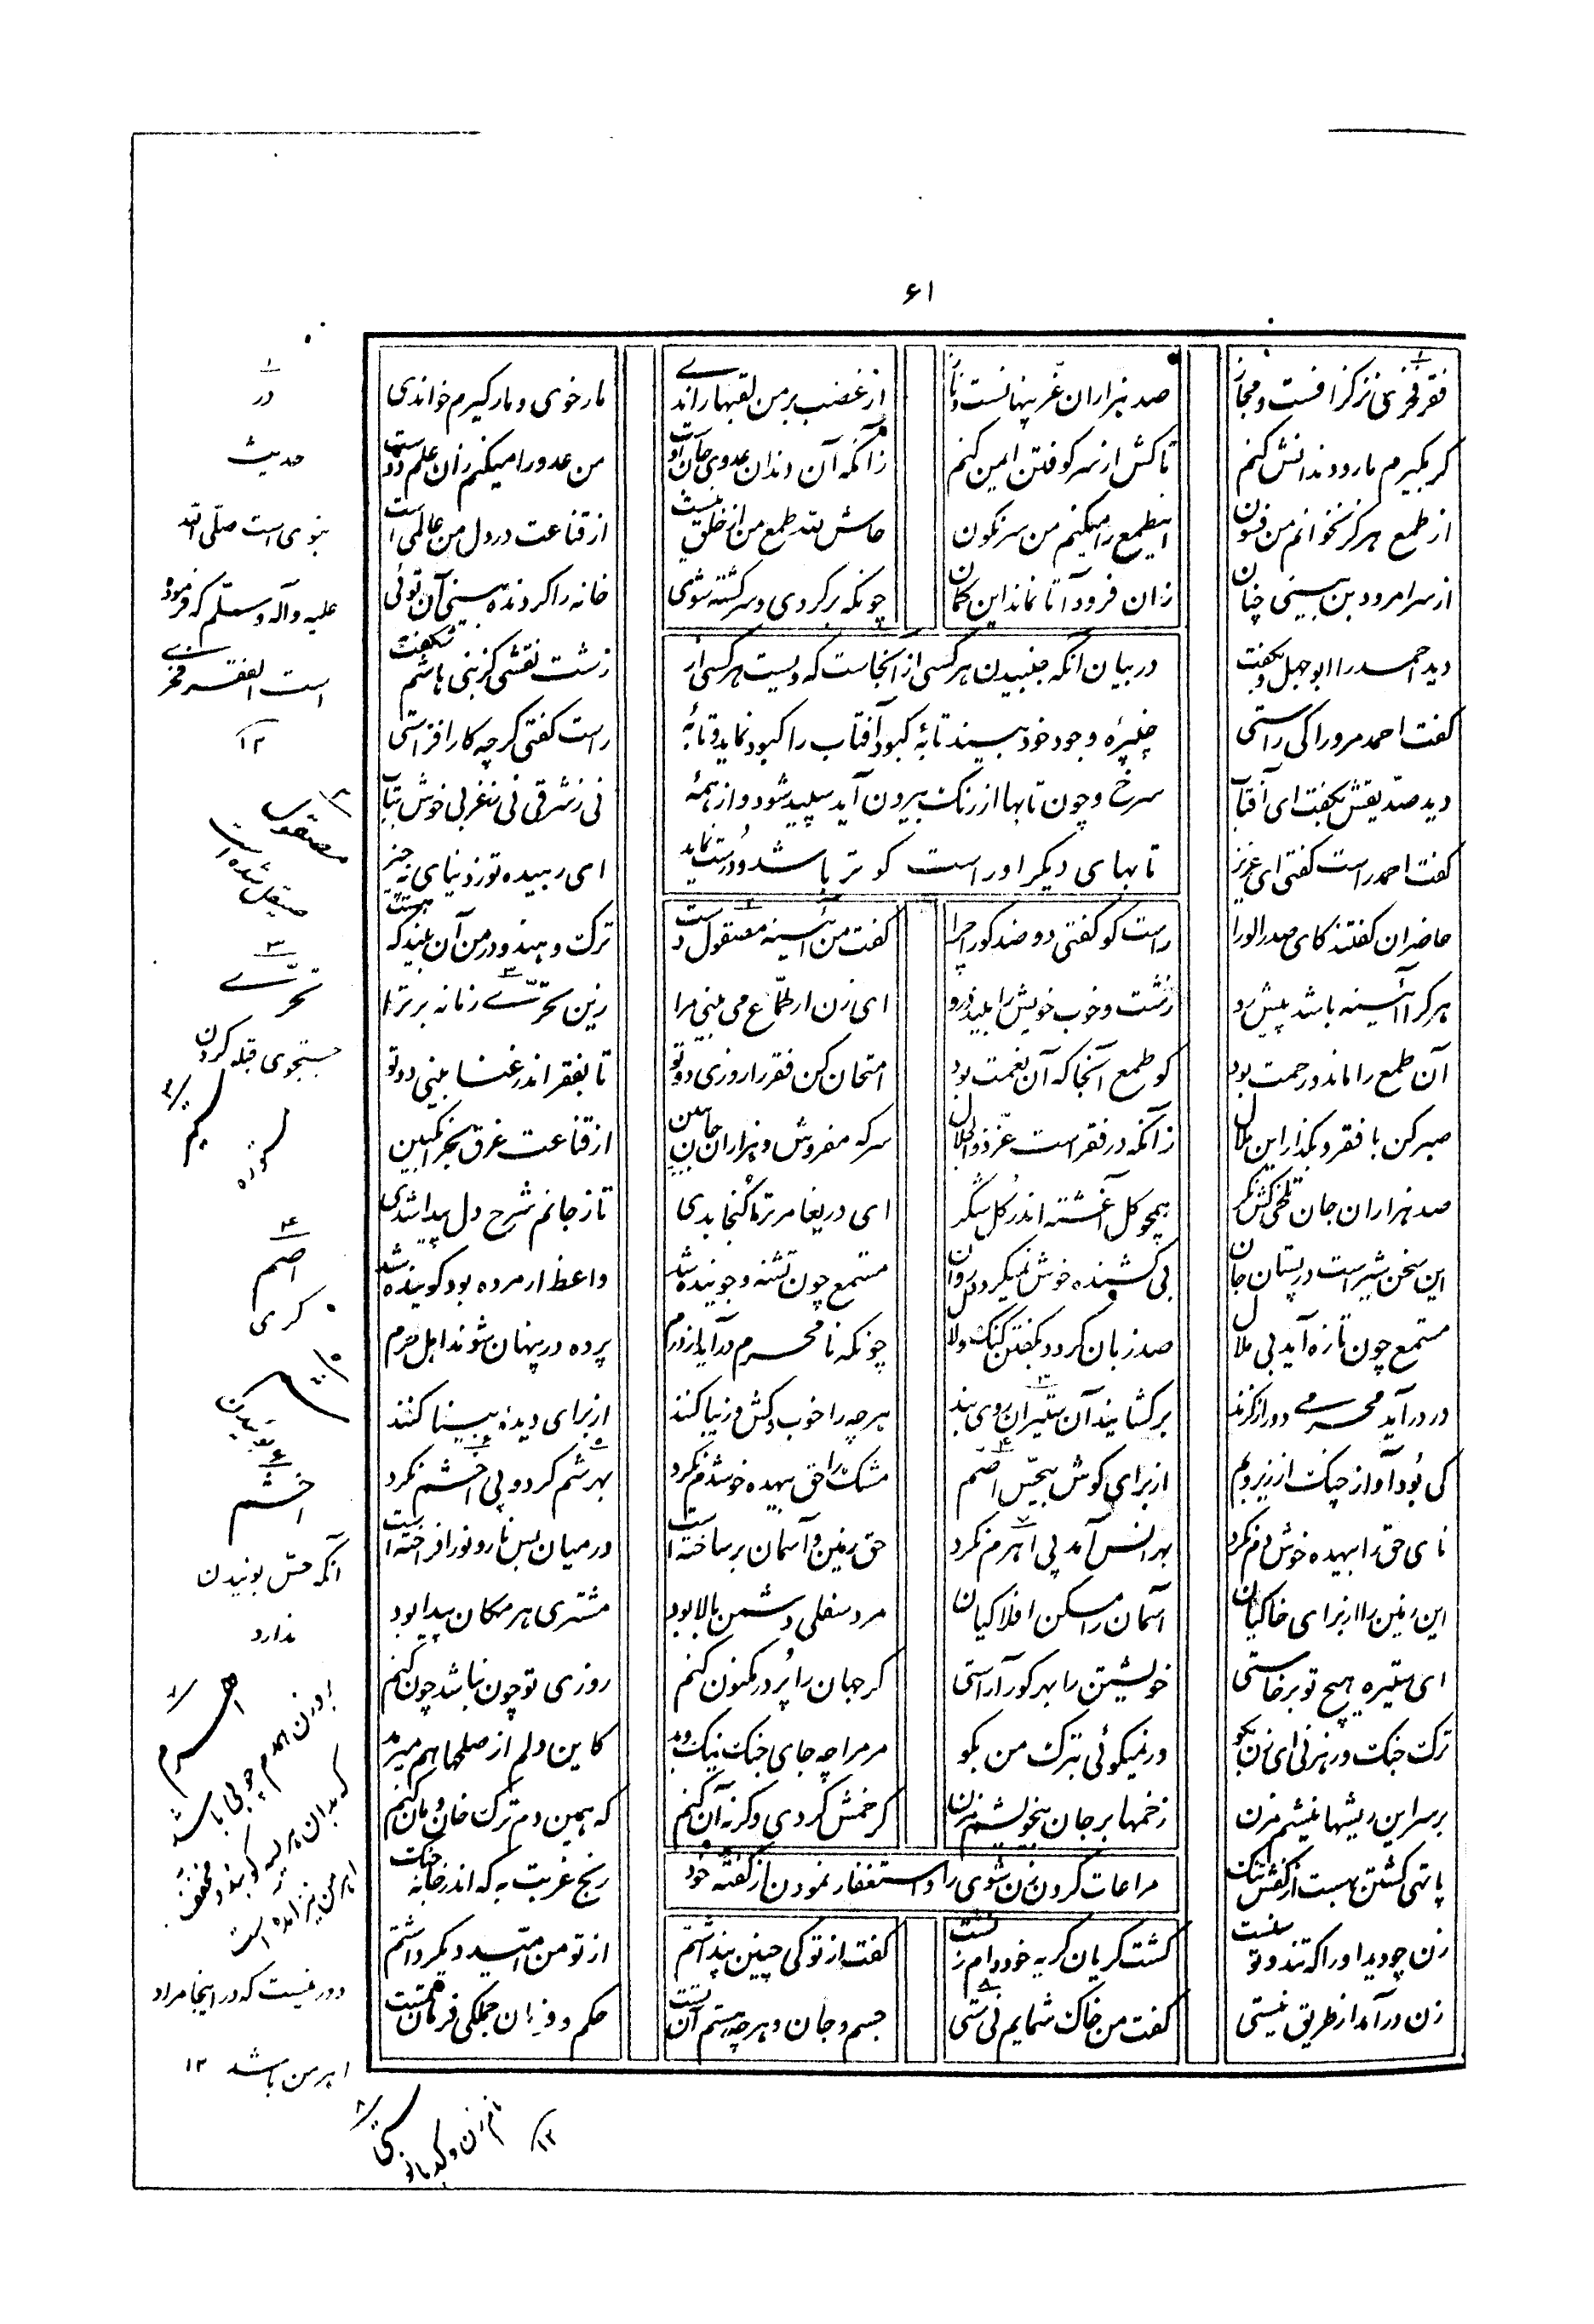 ۶۱
فقر فخری نز گزافست و مجاز	صد هزاران عّز پنهانست و ناز	از غضب بر من لقبها راندی	مارخوی و مارگیرم خواندی
گر بگیرم مار و دندانش کنم	تا کش از سر کوفتن ایمن کنم	زآنکه آن دندان عدوی جان اوست	من عدو را میکنم زان علم دوست
از طمع هرگز نخوانم من فسون	این طمع را میکنم من سرنگون	حاش لله طمع من از خلق نیست	از قناعت در دل من عالمی است
از سر امرود بن بینی چنان	زان فرود آ تا نماند این گمان	چونکه برگردی و سرگشته شوی	خانه را گردنده بینی آن توئی
در بیان آنکه جنبیدن هر کسی از آنجاست که ویست هر کسی از
چنبرهٔ وجود خود بیند تابهٔ کبود آفتاب را کبود نماید و تابهٔ
سرخ و چون تابها از رنگ بیرون آید سپید شود و از همهٔ
تابهای دیگر او راست گو تر باشد و درست نماید
دید احمد را ابوجهل و بگفت	زشت نقشی کز بنی هاشم شگفت
گفت احمد مرورا کی راستی	راست گفتی گرچه کار افزاستی
دید صدیقش بگفت ای آفتاب	نی ز شرقی نی ز غربی خوش بتاب
گفت احمد راست گفتی ای عزیز	ای رهیده تو ز دنیای نه چیز
حاضران گفتند کای صدر الورا	راست گو گفتی دو ضد گو را چرا	گفت من آئینه مصقول دست	ترک و هندو در من آن بیند که هست
هر کرا آئینه باشد پیش رو	زشت و خوب خویش را بیند درو	ای زن ار طمّاع می بینی مرا	زین تحرّی زنانه برتر آ
آن طمع را ماند و رحمت بود	کو طمع آنجا که آن نعمت بود	امتحان کن فقر را روزی دو تو	تا بفقر اندر غنا بینی دو تو
صبر کن با فقر و بگذار این ملال	زآنکه در فقر است عزّ ذوالجلال	سرکه مفروش و هزاران جان ببین	از قناعت غرق بحر انگبین
صد هزاران جان تلخی کش نگر	همچو گل آغشته اندر گل شکر	ای دریغا مر ترا گنجا بدی	تا ز جانم شرح دل پیدا شدی
این سخن شیر است در پستان جان	بی کشنده خوش نمیگردد روان	مستمع چون تشنه و جوینده شد	واعظ ار مرده بود گوینده شد
مستمع چون تازه آید بی ملال	صد زبان گردد بگفتن گنگ و لال	چونکه نامحرم درآید از درم	پرده در پنهان شوند اهل حرم
ور در آید محرمی دور از گزند	برگشایند آن ستیران روی بند	هر چه را خوب و کش و زیبا کنند	از برای دیدهٔ بینا کنند
کی بُود آواز چنگ از زیر و بم	از برای گوش بیحسّ اصم	مشک را حق بیهده خوشدم نکرد	بهر شم کرد و پی اخشم نکرد
نای حق را بیهده خوش دم نکرد	بهر انس آمد پی اهرم نکرد	حق زمین و آسمان بر ساخته است	در میان بس نار و نور افراخته است
این زمین را از برای خاکیان	آسمان را مسکن افلاکیان	مرد سفلی دشمن بالا بود	مشتری هر مکان پیدا بود
ای ستیره هیچ تو برخاستی	خویشتن را بهر کور آراستی	گر جهان را پُر در مکنون کنم	روزی تو چون نباشد چون کنم
ترک جنگ و رهزنی ای زن بگو	ور نمیگوئی بترک من بگو	مر مرا چه جای جنگ نیک و بد	کاین دلم از صلحها هم میرمد
بر سر این ریشها نیشم مزن	زخمها بر جان بیخویشم مزن	گر خمش گردی و گرنه آن کنم	که همین دم ترک خان و مان کنم
پا تهی گشتن بهست از کفش تنگ	رنج غربت به که اندر خانه جنگ
مراعات کردن زن شوی را و استغفار نمودن از گفته خود
زن چو دید او را که تند و تو سنست	گشت گریان گریه خود دام زنست	گفت از تو کی چنین پنداشتم	از تو من امّید دیگر داشتم
زن درآمد از طریق نیستی	گفت من خاک شمایم نی ستی	جسم و جان و هر چه هستم آن تست	حکم و فرمان جملگی فرمان تست
۱
در
حدیث
نبوی است صلّی الله
علیه وآله وسلّم که فرموده
است الفقر فخری
۱۲
۲
مصقول
صیقل شده است
۳
تحرّی
جستجوی قبله کردن
۴
اصم
کری
۵
شم
بوئیدن
۶
اخشم
آنکه حسّ بوئیدن
ندارد
اهرم
دور نیست که در اینجا مراد
اهرمن باشد ۱۲
۸
ستی
نام زن و کدبانو
۱۲